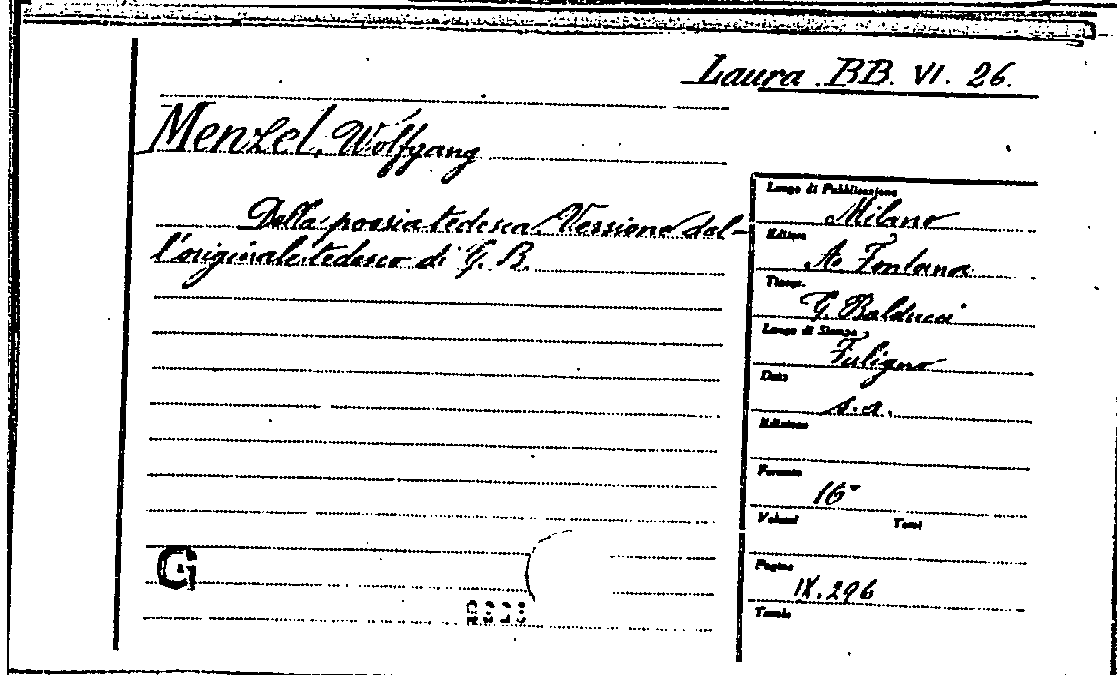 Laura BB. VI. 26.
Menzel, Wolfgang
Della poesia tedesca. Versione dal-
l'originale tedesco di G. B.
Luogo di Pubblicazione
Milano
Editore
A. Fontana
Tipogr.
G. Balducci
Luogo di Stampa
Fuligno
Data
s.a.
Edizione
Formato
16°
Volumi Tomi
Pagine
IX. 296
Tavole
G